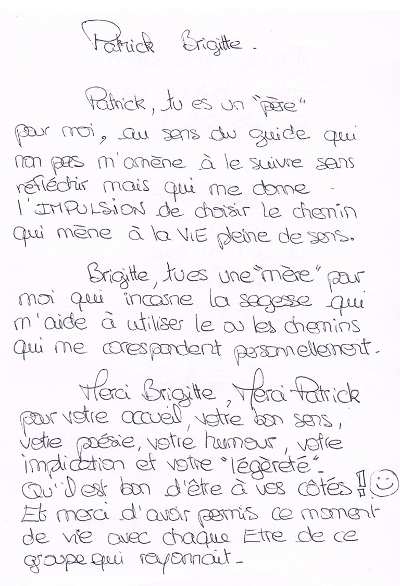 Patrick Brigitte.
Patrick, tu es un "père"
pour moi, au sens du guide qui
non pas m'amène à le suivre sans
réfléchir mais qui me donne
l'IMPULSION de choisir le chemin
qui mène à la ViE pleine de sens.
Brigitte, tu es une "mère" pour
moi qui incarne la sagesse qui
m'aide à utiliser le ou les chemins
qui me corespondent personnellement.
Merci Brigitte, Merci Patrick
pour votre accueil, votre bon sens,
votre poésie, votre humour, votre
implication et votre "légèreté".
Qu'il est bon d'être à vos côtés !
Et merci d'avoir permis ce moment
de vie avec chaque Etre de ce
groupe qui rayonnait.